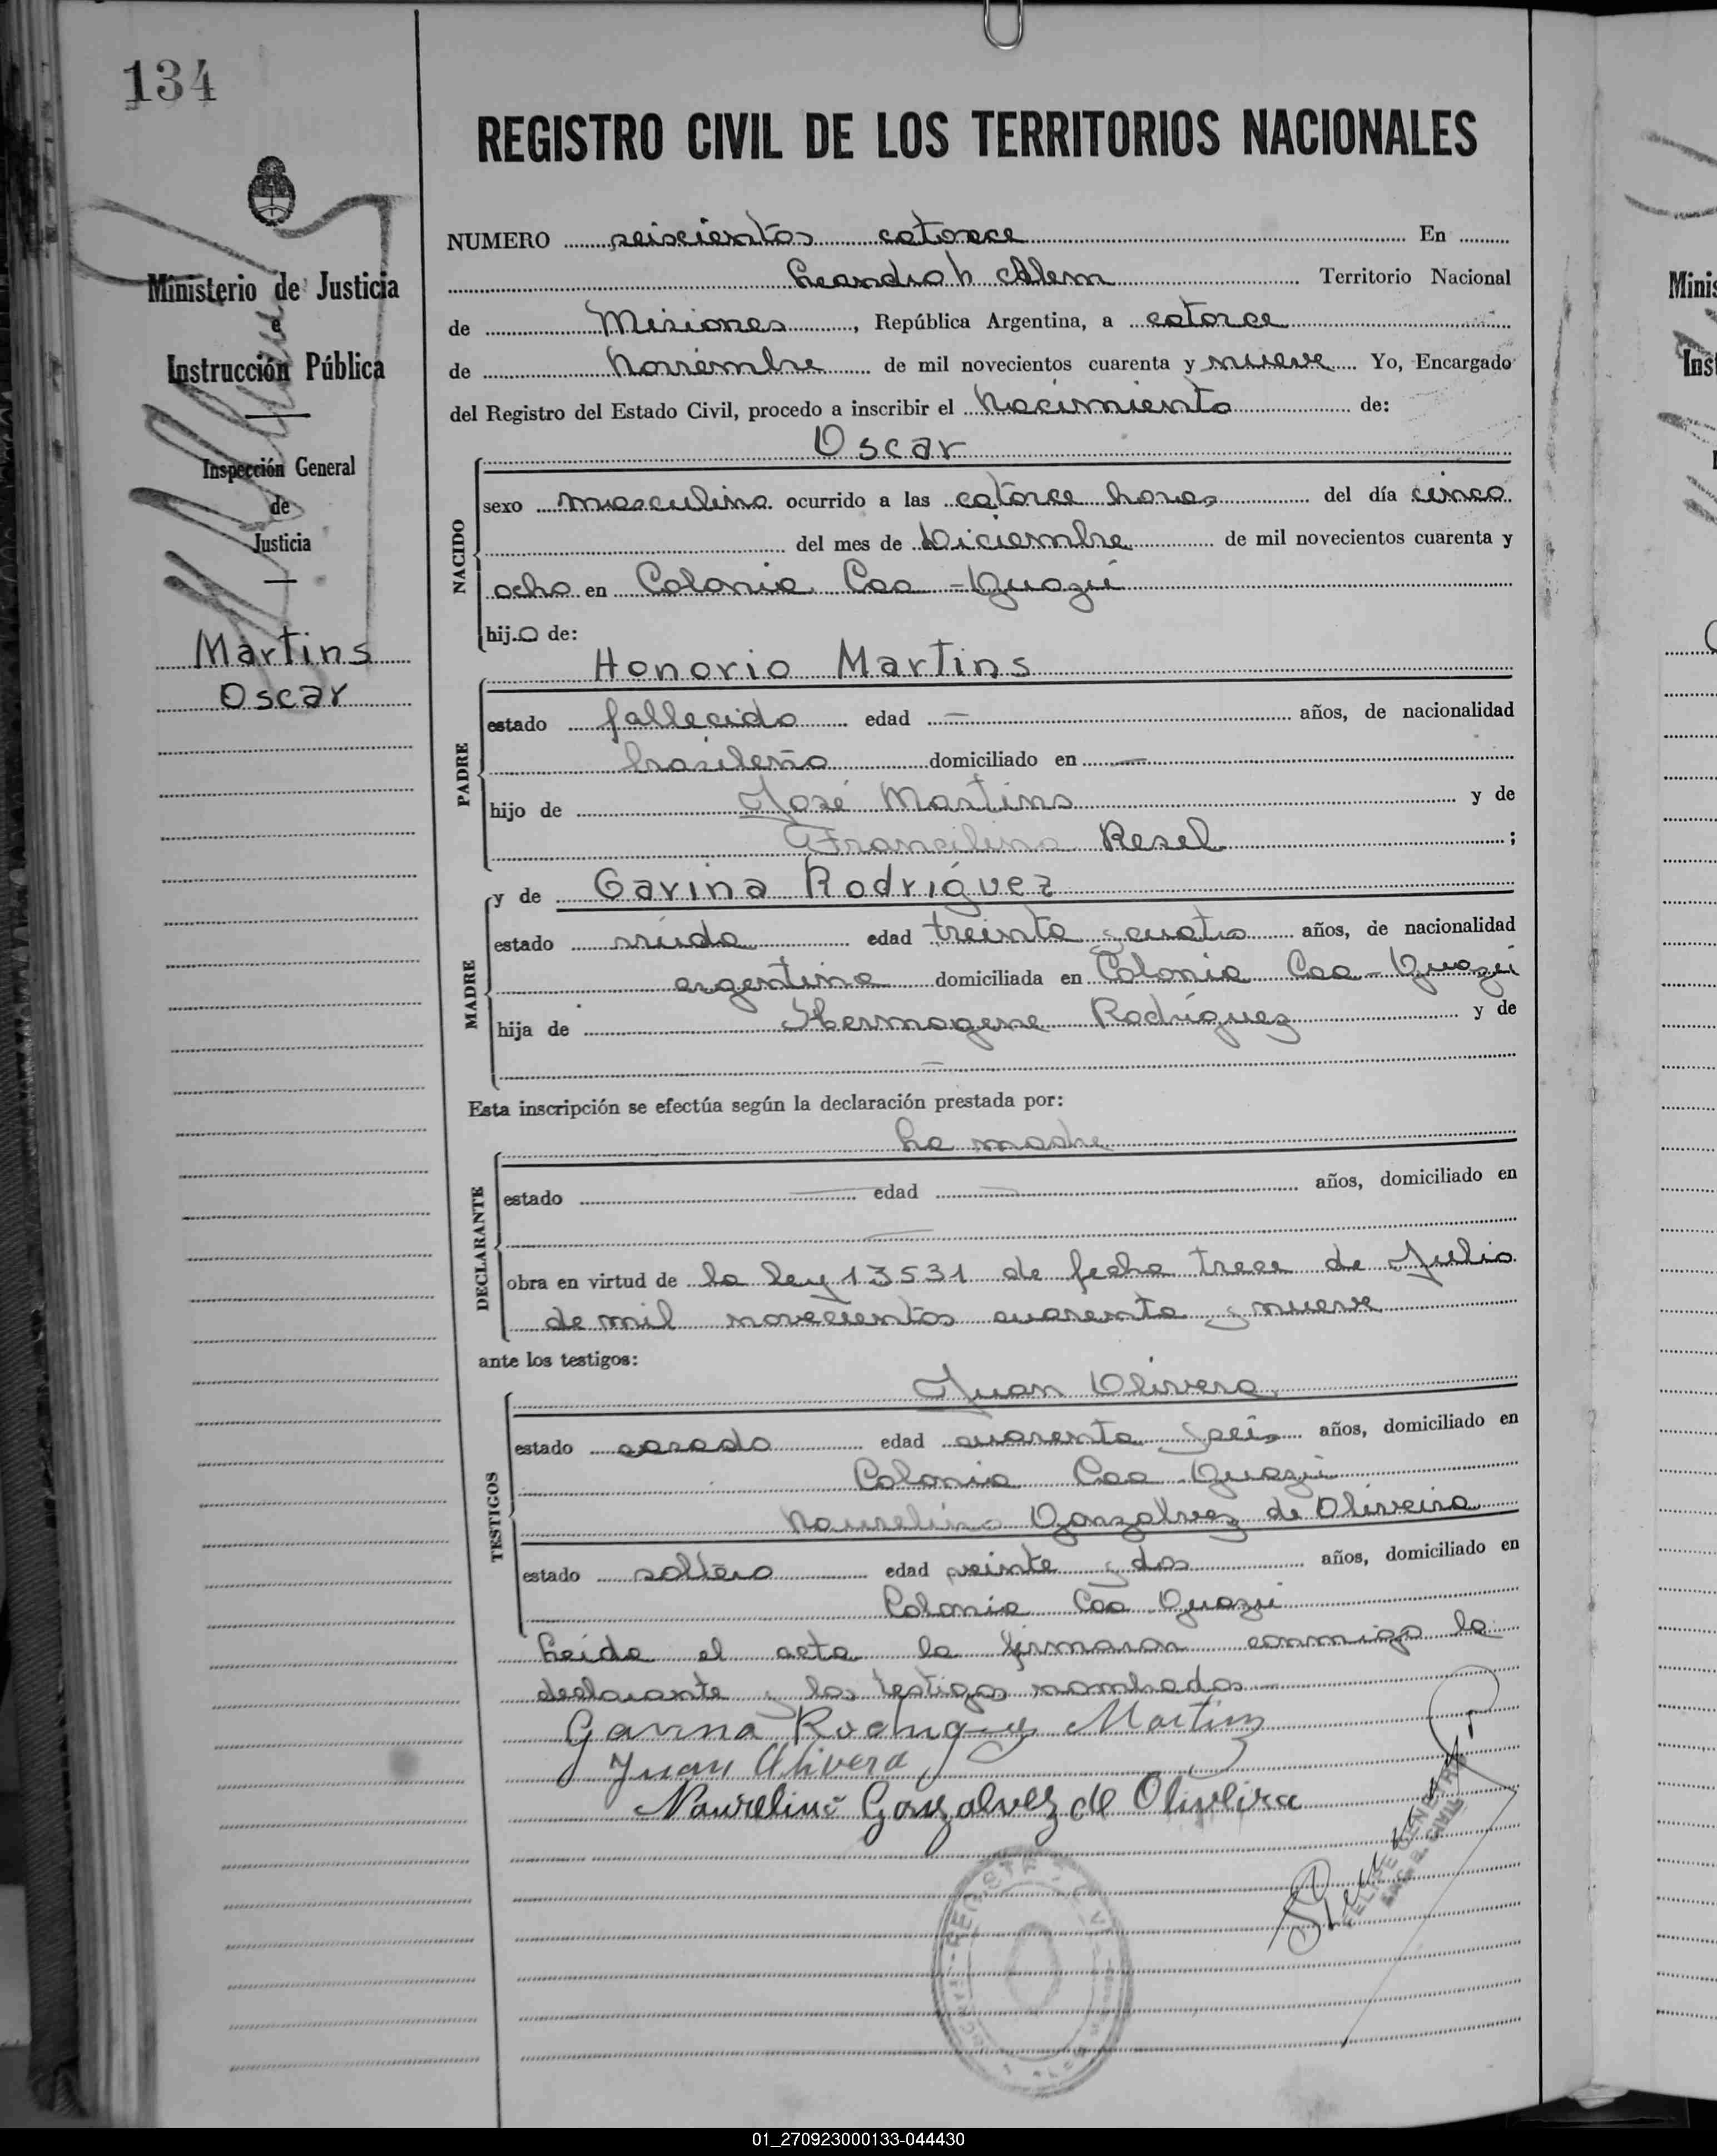 134
REGISTRO CIVIL DE LOS TERRITORIOS NACIONALES
Ministerio de Justicia
e
Instrucción Pública
Inspección General
de
Justicia
Martins
Oscar
NUMERO seiscientos catorce En
Leandro N. Alem Territorio Nacional
de Misiones, República Argentina, a catorce
de Noviembre de mil novecientos cuarenta y nueve Yo, Encargado
del Registro del Estado Civil, procedo a inscribir el Nacimiento de:
Oscar
NACIDO
sexo masculino ocurrido a las catorce horas del día cinco
del mes de Diciembre de mil novecientos cuarenta y
ocho en Colonia Caa-Guazú
hijo de:
Honorio Martins
PADRE
estado fallecido edad — años, de nacionalidad
brasileño domiciliado en —
hijo de José Martins y de
Francilina Resel ;
y de Garina Rodríguez
MADRE
estado viuda edad treinta y cuatro años, de nacionalidad
argentina domiciliada en Colonia Caa-Guazú
hija de Hermogene Rodríguez y de
—
Esta inscripción se efectúa según la declaración prestada por:
La madre
DECLARANTE
estado — edad — años, domiciliado en
—
obra en virtud de la ley 13531 de fecha trece de Julio
de mil novecientos cuarenta y nueve
ante los testigos:
Juan Olivera
TESTIGOS
estado casado edad cuarenta y seis años, domiciliado en
Colonia Caa Guazú
Naurelino Gonzalvez de Oliveira
estado soltero edad veinte y dos años, domiciliado en
Colonia Caa Guazú
Leída el acta la firmaron conmigo la
declarante y los testigos nombrados
Garina Rodriguez Martinz
Juan Olivera
Naurelino Gonzalvez de Oliveira
01_270923000133-044430